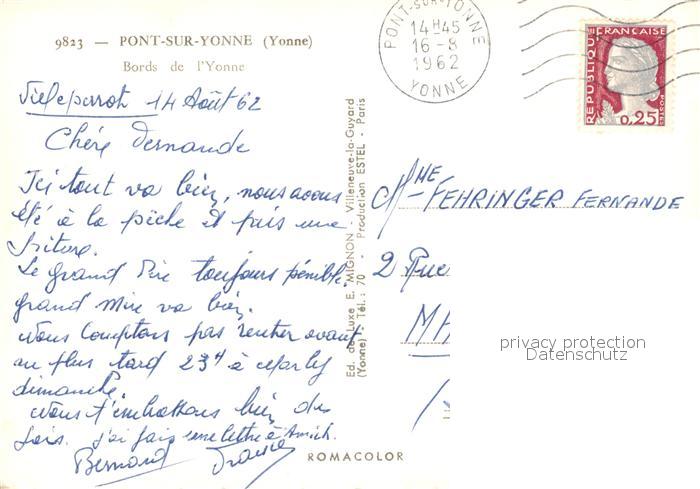 9823 — PONT-SUR-YONNE (Yonne)
Bords de l'Yonne
14 Août 62
Chère Fernande
Ici tout va bien, nous avons
été à la pêche et pris une
friture.
Le grand Père toujours pénible.
grand Mère va bien.
nous comptons pas rentrer avant
au plus tard 23H à Marly
dimanche.
nous t'embrassons bien des
fois. j'ai fais une lettre à
Bernard
Ed. de Luxe E. MIGNON - Villeneuve-la-Guyard
(Yonne) - Tél.: 70 - Production ESTEL - Paris
ROMACOLOR
PONT-SUR-YONNE
14H45
16-8
1962
YONNE
REPUBLIQUE FRANÇAISE
POSTES
0,25
MME FEHRINGER FERNANDE
2 Rue
MA
privacy protection
Datenschutz